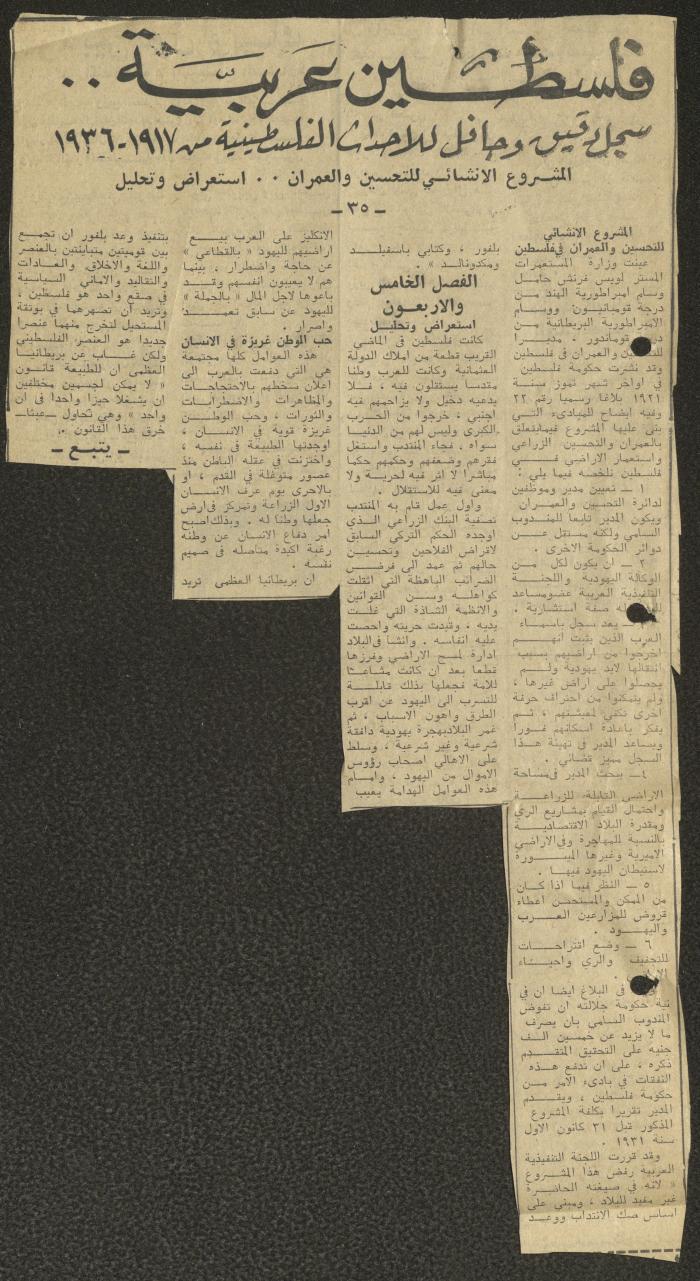 فلسطين عربية ..
سجل دقيق وحافل للاحداث الفلسطينية من ١٩١٧-١٩٣٦
المشروع الانشائي للتحسين والعمران .. استعراض وتحليل
- ٣٥ -
المشروع الانشائي
للتحسين والعمران في فلسطين
عينت وزارة المستعمرات
المستر لويس فرنش حامل
وسام امبراطورية الهند من
درجة قومبانيون ووسام
الامبراطورية البريطانية من
درجة قوماندور . مديرا
والعمران في فلسطين
وقد نشرت حكومة فلسطين
في اواخر شهر تموز سنة
١٩٢١ بلاغا رسميا رقم ٢٢
وفيه ايضاح للمباديء التي
بني عليها المشروع فيمايتعلق
بالعمران والتحسين الزراعي
واستعمار الاراضي في
فلسطين نلخصه فيما يلي :
١ - تعيين مدير وموظفين
لدائرة التحسين والعمران
ويكون المدير تابعا للمندوب
السامي ولكنه مستقل عن
دوائر الحكومة الاخرى .
٢ - ان يكون لكل من
الوكالة اليهودية واللجنة
التنفيذية العربية عضومساعد
له صفة استشارية .
يعد سجل باسماء
العرب الذين يثبت انهم
اخرجوا من اراضيهم بسبب
انتقالها لايد يهودية ولم
يحصلوا على اراض غيرها ،
ولم يتمكنوا من احتراف حرفة
اخرى تكفي لمعيشتهم ، ثم
يفكر باعادة اسكانهم فورا
ويساعد المدير في تهيئة هذا
السجل مميز قضائي .
٤ - يبحث المدير في مساحة
الاراضي القابلة للزراعة
واحتمال القيام بمشاريع الري
ومقدرة البلاد الاقتصادية
بالنسبة للمهاجرة وفي الاراضي
الاميرية وغيرها الميسورة
لاستيطان اليهود فيها .
٥ - النظر فيما اذا كان
من الممكن والمستحسن اعطاء
قروض للمزارعين العرب
واليهود .
٦ - وضع اقتراحات
للتجفيف والري واحياء
في البلاغ ايضا ان في
نية حكومة جلالته ان تفوض
المندوب السامي بان يصرف
ما لا يزيد عن خمسين الف
جنيه على التحقيق المتقدم
ذكره ، على ان تدفع هذه
النفقات في بادىء الامر من
حكومة فلسطين ، ويقدم
المدير تقريرا بكلفة المشروع
المذكور قبل ٣١ كانون الاول
سنة ١٩٣١ .
وقد قررت اللجنة التنفيذية
العربية رفض هذا المشروع
« لانه في صيغته الحاضرة
غير مفيد للبلاد ، ومبني على
اساس صك الانتداب ووعد
بلفور ، وكتابي باسفيلد
ومكدونالد » .
الفصل الخامس
والاربعون
استعراض وتحليل
كانت فلسطين في الماضي
القريب قطعة من املاك الدولة
العثمانية وكانت للعرب وطنا
مقدسا يستقلون فيه ، فلا
يدعيه دخيل ولا يزاحمهم فيه
اجنبي ، خرجوا من الحرب
الكبرى وليس لهم من الدنيا
سواه ، فجاء المنتدب واستغل
فقرهم وضعفهم وحكمهم حكما
مباشرا لا اثر فيه لحرية ولا
معنى فيه للاستقلال .
واول عمل قام به المنتدب
تصفية البنك الزراعي الذي
اوجده الحكم التركي السابق
لاقراض الفلاحين وتحسين
حالهم ثم عمد الى فرض
الضرائب الباهظة التي اثقلت
كواهله وسن القوانين
والانظمة الشاذة التي غلت
يديه ، وقيدت حريته واحصت
عليه انفاسه . وانشأ في البلاد
ادارة لمسح الاراضي وفرزها
قطعا بعد ان كانت مشاعا
للامة فجعلها بذلك قابلة
للتسرب الى اليهود عن اقرب
الطرق واهون الاسباب ، ثم
غمر البلاد بهجرة يهودية دافقة
شرعية وغير شرعية ، وسلط
على الاهالي اصحاب رؤوس
الاموال من اليهود ، وامام
هذه العوامل الهدامة يعيب
الانكليز على العرب بيع
اراضيهم لليهود « بالقطاعي »
عن حاجة واضطرار . بينما
هم لا يعيبون انفسهم وقد
باعوها لاجل المال « بالجملة »
لليهود عن سابق تعمد
واصرار .
حب الوطن غريزة في الانسان
هذه العوامل كلها مجتمعة
هي التي دفعت بالعرب الى
اعلان سخطهم بالاحتجاجات
والمظاهرات والاضطرابات
والثورات ، وحب الوطن
غريزة قوية في الانسان ،
اوجدتها الطبيعة في نفسه ،
واختزنت في عقله الباطن منذ
عصور متوغلة في القدم ، او
بالاحرى يوم عرف الانسان
الاول الزراعة وتمركز في ارض
جعلها وطنا له . وبذلك اصبح
امر دفاع الانسان عن وطنه
رغبة اكيدة متاصلة في صميم
نفسه .
ان بريطانيا العظمى تريد
بتنفيذ وعد بلفور ان تجمع
بين قوميتين متباينتين بالعنصر
واللغة والاخلاق والعادات
والتقاليد والاماني السياسية
في صقع واحد هو فلسطين ،
وتريد ان تصهرهما في بوتقة
المستحيل لتخرج منهما عنصرا
جديدا هو العنصر الفلسطيني
ولكن غاب عن بريطانيا
العظمى ان للطبيعة قانون
« لا يمكن لجسمين مختلفين
ان يشغلا حيزا واحدا في ان
واحد » وهي تحاول عبثا
خرق هذا القانون .
- يتبع -